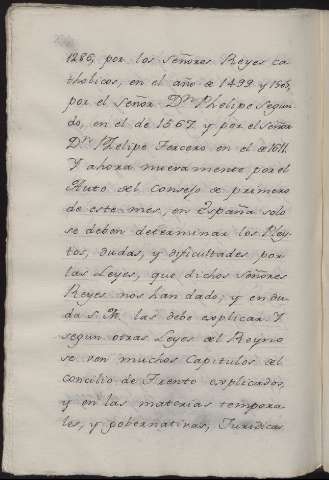 1286, por los señores Reyes ca
tholicos, en el año de 1499 y 1505,
por el señor Dn. Phelipe segun
do, en el de 1567 y por el señor
Dn. Phelipe Tercero en el de 1611.
Y ahora nuevamente, por el
Auto del Consejo de primero
de este mes, en España solo
se deben determinar los Pley
tos, dudas, y dificultades por
las Leyes, que dichos señores
Reyes nos han dado; y en du
da S. M. las debe explicar. Y
segun otras Leyes del Reyno
se ven muchos Capitulos del
concilio de Trento explicados,
y en las materias tempora
les, y gobernativas, Juridicas.